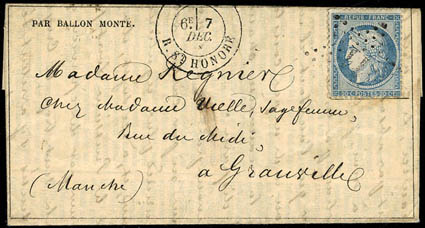 PAR BALLON MONTÉ.
6E 7
DEC.
R. ST HONORÉ
REPUB. FRANC.
20 C POSTES 20 C
Madame Regnier
Chez Madame Vielle, Sagefemme,
Rue du Midi,
à Granville
(Manche)